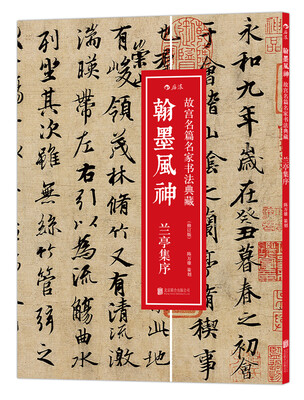 永和九年歲在癸丑暮春之初會
于會稽山陰之蘭亭脩稧事
有峻領茂林脩竹又有清流激
湍暎帶左右引以為流觴曲水
列坐其次雖無絲竹管弦之
后浪
故宫名篇名家书法典藏
翰墨風神
兰亭集序
后浪
翰墨風神
故宫名篇名家书法典藏
兰亭集序